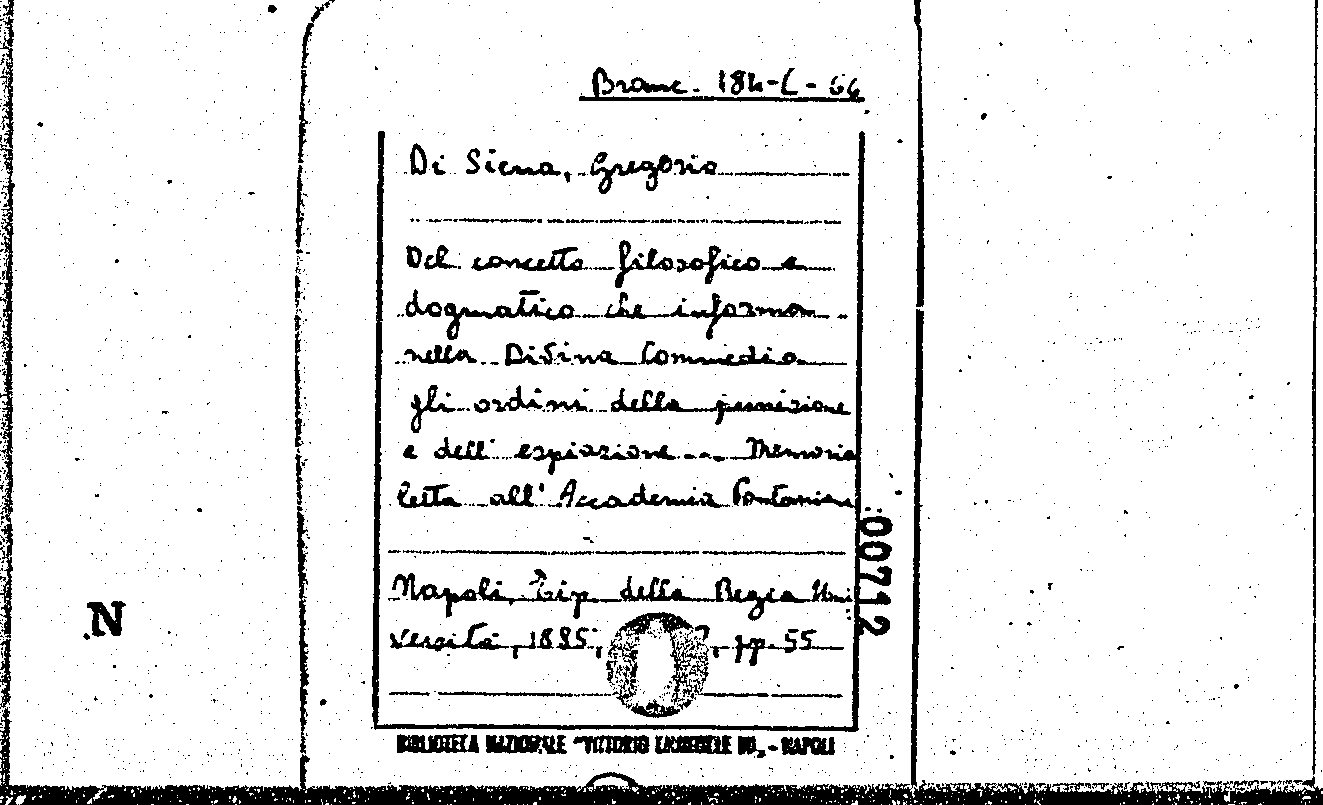 Branc. 184-L-66
Di Siena, Gregorio
Del concetto filosofico e
dogmatico che informan
nella Divina Commedia
gli ordini della punizione
e dell' espiazione... Memoria
letta all' Accademia Pontaniana
Napoli, Tip. della Regia Uni
versità, 1885, pp. 55
BIBLIOTECA NAZIONALE "VITTORIO EMANUELE III" - NAPOLI
00712
N